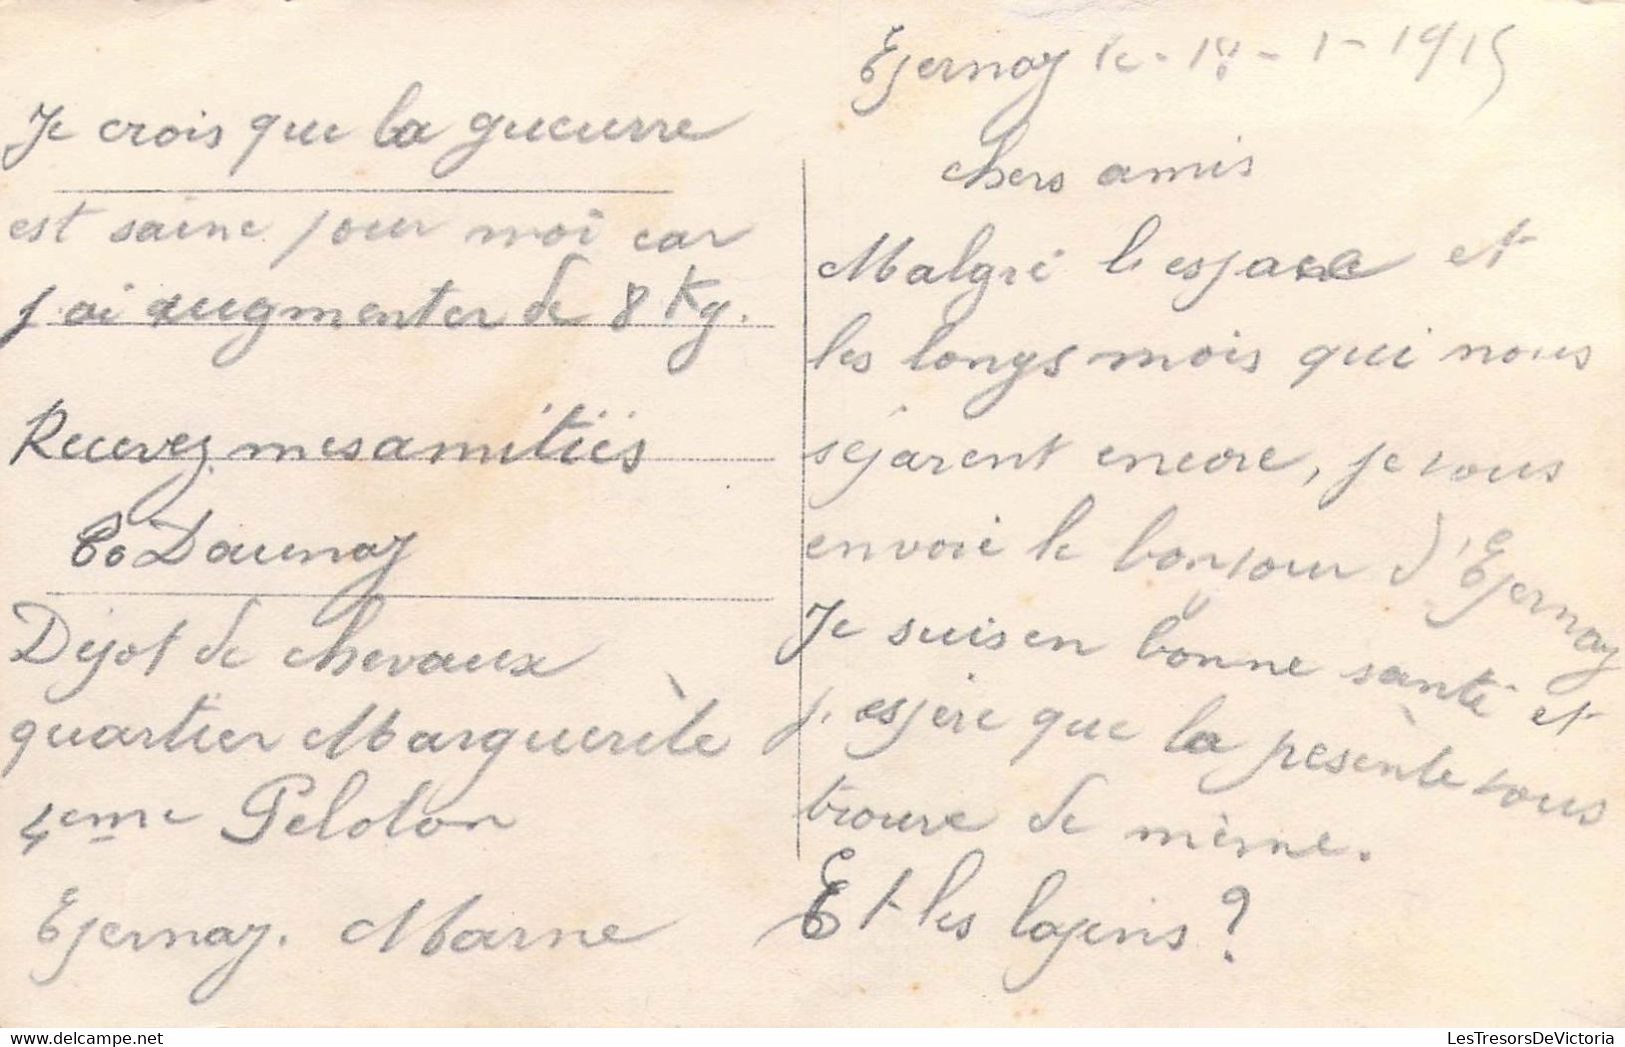 Epernay le - 18 - 1 - 1915
chers amis
Malgré l'espace et
les longs mois qui nous
séparent encore, je vous
envoie le bonjour d'Epernay
Je suis en bonne santé et
j'espère que la présènte vous
trouve de même.
Et les lapins ?
Je crois que la gueurre
est saine pour moi car
j'ai augmenter de 8 Kg.
Recevez mes amitiés
Daunay
Dépot de chevaux
quartier Marguerite
4eme Peloton
Epernay. Marne
LesTresorsDeVictoria.com